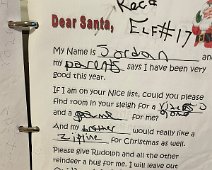 Dear Santa,
Elf#17
My Name is Jordan and
my parents says I have been very
good this year.
If I am on your Nice list, Could you please
find room in your sleigh for a
and a for me?
And my brother would really like a
Zipline for Christmas as well.
Please give Rudolph and all the other
reindeer a hug for me. I will leave out